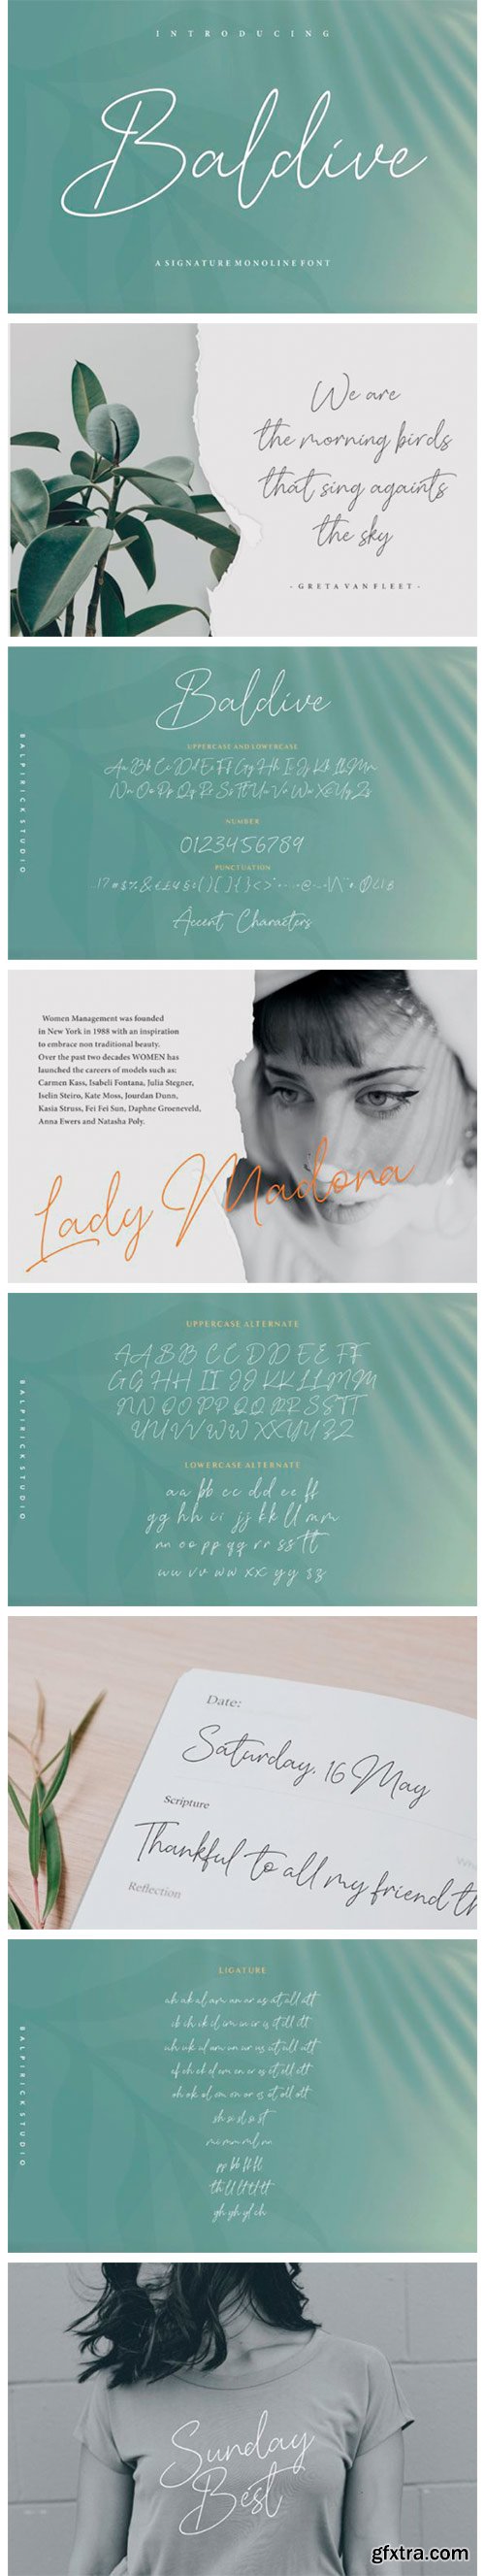 INTRODUCING
Baldive
A SIGNATURE MONOLINE FONT
We are
the morning birds
that sing againts
the sky
- GRETA VAN FLEET -
BALPIRICK STUDIO
Baldive
UPPERCASE AND LOWERCASE
Aa Bb Cc Dd Ee Ff Gg Hh Ii Jj Kk Ll Mm
Nn Oo Pp Qq Rr Ss Tt Uu Vv Ww Xx Yy Zz
NUMBER
0123456789
PUNCTUATION
Accent Characters
Women Management was founded
in New York in 1988 with an inspiration
to embrace non traditional beauty.
Over the past two decades WOMEN has
launched the careers of models such as:
Carmen Kass, Isabeli Fontana, Julia Stegner,
Iselin Steiro, Kate Moss, Jourdan Dunn,
Kasia Struss, Fei Fei Sun, Daphne Groeneveld,
Anna Ewers and Natasha Poly.
Lady Madona
BALPIRICK STUDIO
UPPERCASE ALTERNATE
AA BB CC DD EE FF
GG HH II JJ KK LL MM
NN OO PP QQ RR SS TT
UU VV WW XX YY ZZ
LOWERCASE ALTERNATE
aa bb cc dd ee ff
gg hh ii jj kk ll mm
nn oo pp qq rr ss tt
uu vv ww xx yy zz
Date:
Saturday, 16 May
Scripture
Thankful to all my friend th
Reflection
BALPIRICK STUDIO
LIGATURE
Sunday
Best
gfxtra.com